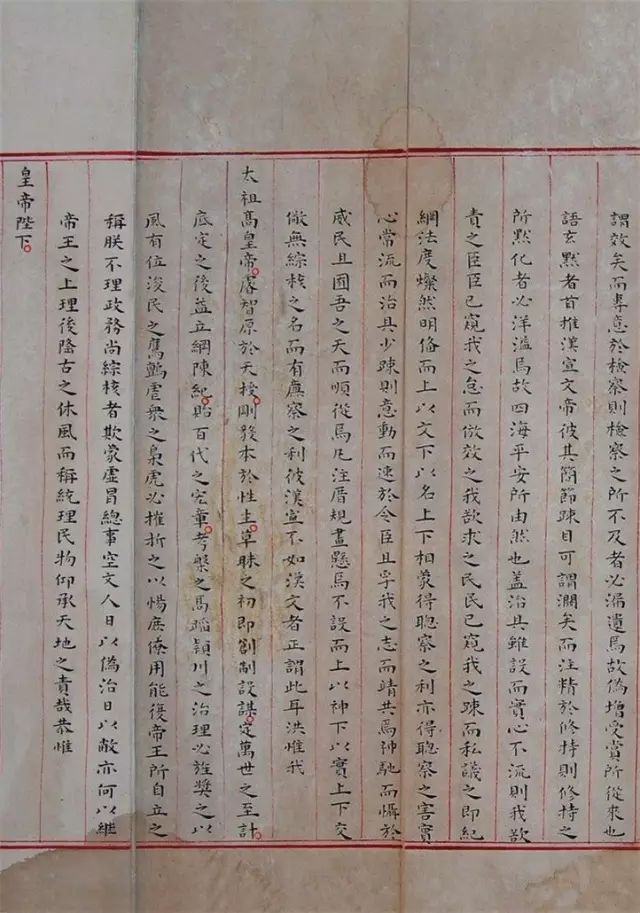 謂效矣而專意於檢察則檢察之所不及者必漏遺焉故偽增受賞所從來也
語玄默者首推漢宣文帝彼其簡節疎目可謂濶矣而注精於修持則修持之
所默化者必洋溢焉故四海平安所由然也蓋治具雖設而實心不流則我欲
責之臣臣已窺我之怠而倣效之我欲求之民民已窺我之疎而私議之即紀
綱法度燦然明備而上以文下以名上下相蒙得聰察之利亦得聰察之害實
心常流而治具少疎則意動而速於令臣且孚我之志而靖共焉神馳而懾於
威民且囿吾之天而順從焉凡注厝規畫懸焉不設而上以神下以實上下交
儆無綜核之名而有廉察之利彼漢宣不如漢文者正謂此耳洪惟我
太祖高皇帝睿智原於天授剛毅本於性生草昧之初即創制設謀定萬世之至計
底定之後益立綱陳紀貽百代之宏章考槃之馬踰潁川之治理必旌獎之以
風有位浚民之鷹鸇虐衆之梟虎必摧折之以惕庶僚用能復帝王所自立之
稱朕不理政務尚綜核者欺蒙虛冒總事空文人日以偽治日以敝亦何以繼
帝王之上理後隆古之休風而稱統理民物仰承天地之責哉恭惟
皇帝陛下